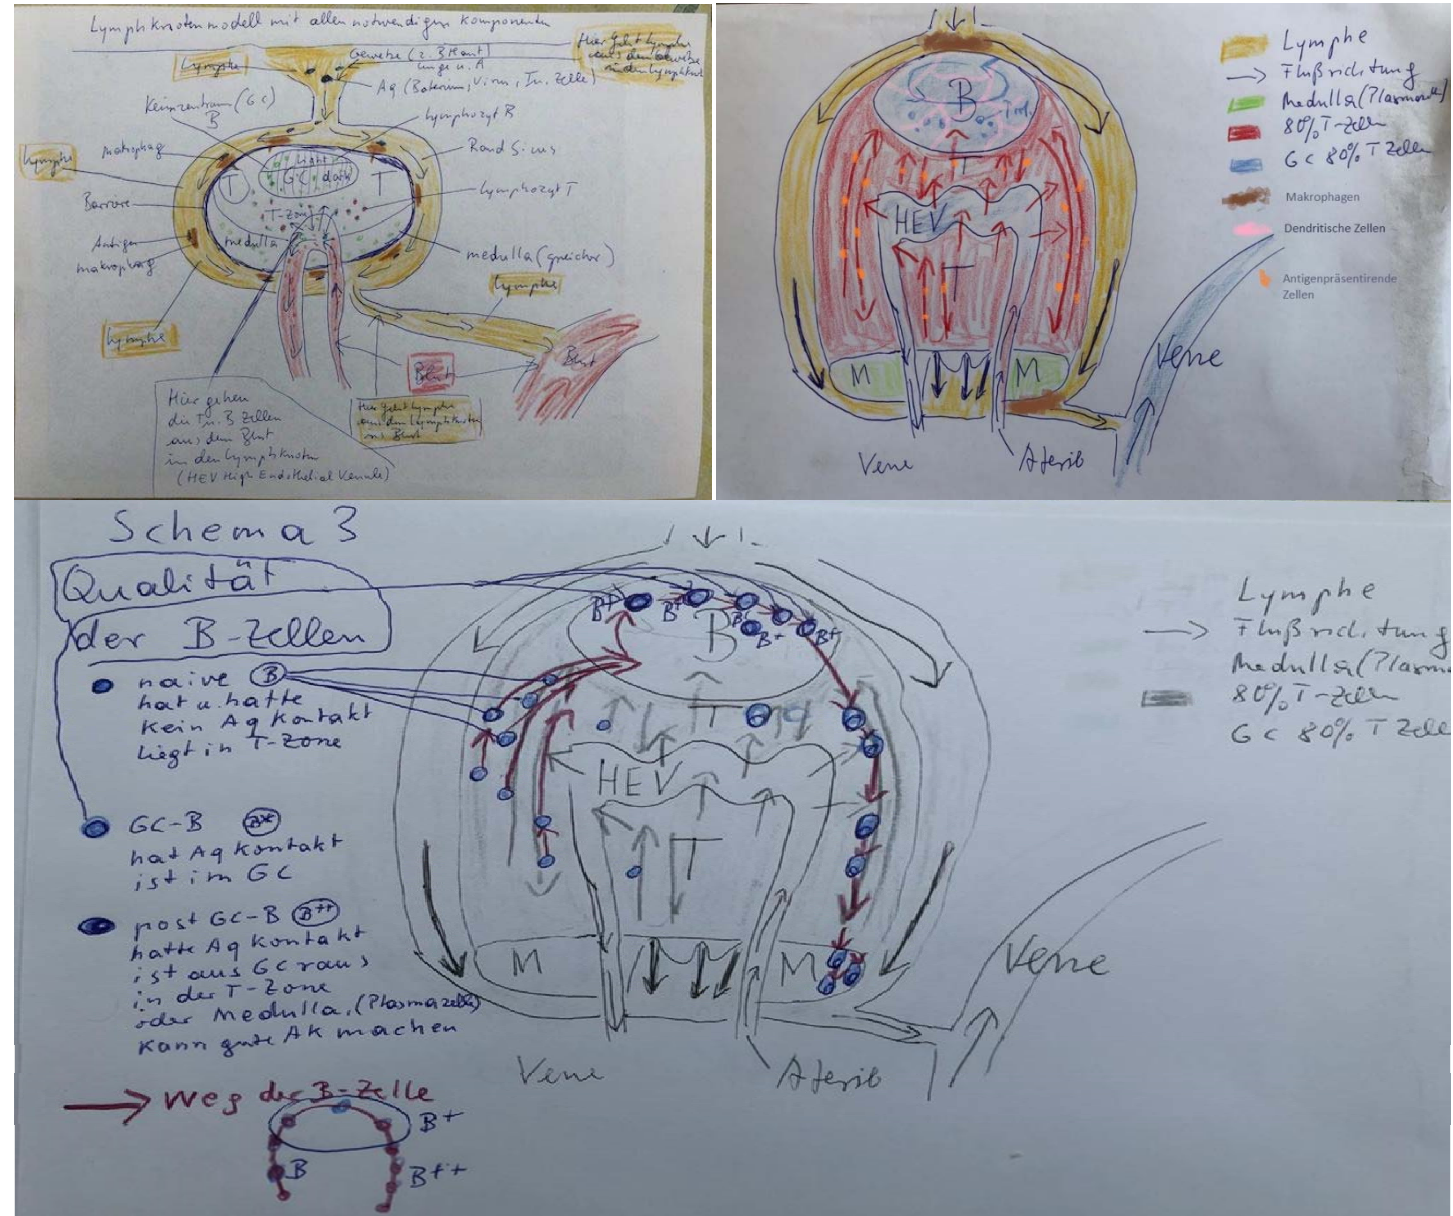 Lymphknotenmodell mit allen notwendigen Komponenten
Lymphe
Gewebe (z. B Haut)
Lunge u. A
Hier geht Lymphe
aus dem Gewebe
in den Lymphkn
Ag (Bakterium, Virus, Tu. Zelle)
Keimzentrum (GC)
B
Lymphozyt B
Makrophag
Rand Sinus
Lymphe
light
GC dark
T
T
Lymphozyt T
Barriere
T-Zone
medulla
Antigen
makrophag
medulla (speicher)
Lymphe
Lymphe
Blut
Blut
Hier gehen
die T u. B Zellen
aus dem Blut
in den Lymphknoten
(HEV High Endothelial Venule)
Hier geht Lymphe
aus dem Lymphknoten
ins Blut
B
T
HEV
T
M
M
Vene
Vene
Aterie
Lymphe
Flußrichtung
Medulla (Plasmazell)
80% T-Zellen
GC 80% T Zellen
Makrophagen
Dendritische Zellen
Antigenpräsentirende
Zellen
Schema 3
Qualität
der B-Zellen
naive B
hat u. hatte
kein Ag Kontakt
liegt in T-Zone
GC-B B+
hat Ag Kontakt
ist im GC
post GC-B B++
hatte Ag Kontakt
ist aus GC raus
in der T-Zone
oder Medulla, (Plasmazelle)
kann gute AK machen
Weg der B-Zelle
B+
B
B++
B+
B+
B+
B+
B+
B
T
HEV
T
M
M
Vene
Aterie
Vene
Lymphe
Flußrichtung
Medulla (Plasma
80% T-Zellen
GC 80% T Zelle